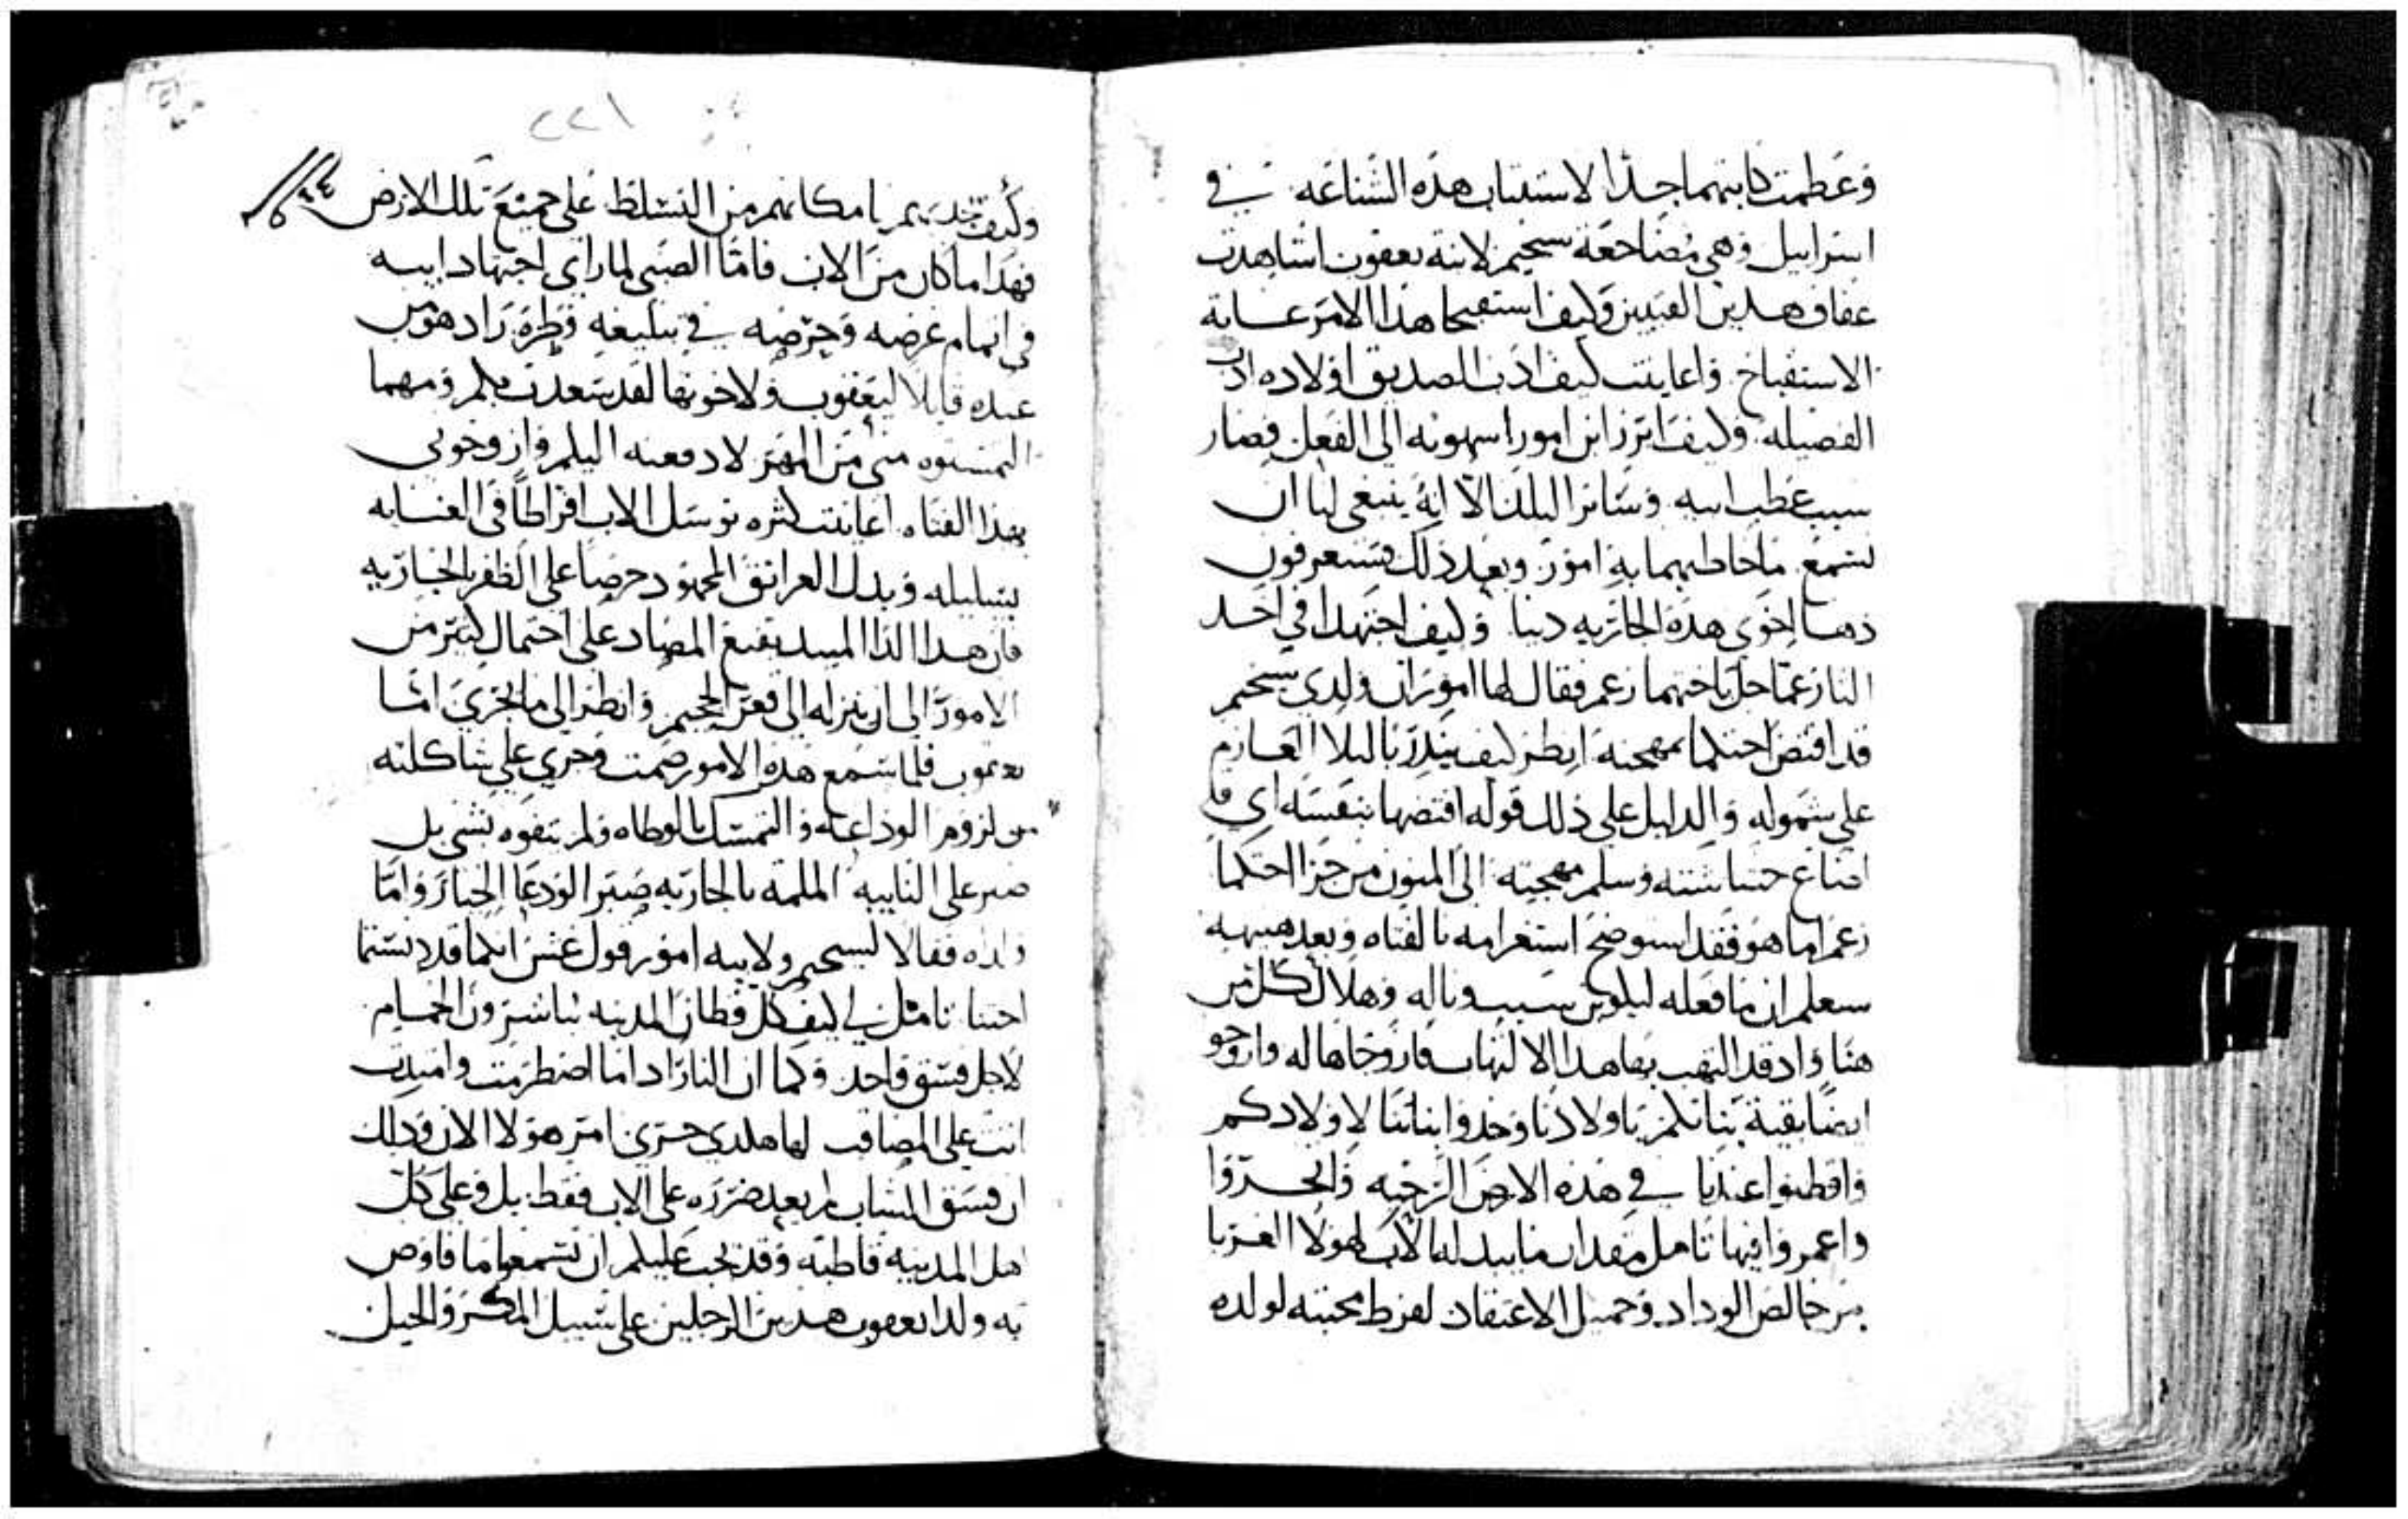 وعظمت كابتهما جدا لاستتباب هذه الشناعه في
اسراييل وهي مضاجعة سخيم لابنة يعقوب اشاهدت
عفاف هدين الفتيين وكيف استقبحا هذا الامر غاية
الاستقباح واعاينت كيف ادب الصديق اولاده اداب
الفضيله وكيف ابرز ابن امور شهوته الى الفعل فصار
سبب عطب ابيه وسائر البلد الا انه ينبغي لنا ان
نسمع ما خاطبهما به امور وبعد ذلك فستعرفون
دهـا اخوي هذه الجاريه دينا وكيف اجتهدا في اخـد
النار عما حل باختهما زعم فقال لهما امور ان ولدي سخيم
قد اقتضى احتكما بمهجته انظر كيف ينذر بالبلا العازم
على شموله والدليل على ذلك قوله اقتضها بنفسه اي قد
اضاع حشاشته وسلم مهجته الى المنون من جرا احتكما
زعم اما هو فقد استوضح استغرامه بالفتاه وبعد هنيهة
سيعلم ان ما فعله ليكونن سبب وباله وهلاك كل من
هنا واد قد التهب بها هذا الالتهاب فازوجاها له وازوجو
ايضا بقية بناتكم باولادنا وخدوا بناتنا لاولادكم
واقطنوا عندنا في هذه الارض الرحبه واتجـروا
واعمروا فيها تامل مقدار ما يبديه الاب لهولا الغربا
من خالص الوداد وجميل الاعتقاد لفرط محبته لولده
٢٢١
٣٤
وكيف يعدهم بامكانهم من التسلط على جميع تلك الارض
فهدا ما كان من الاب فاما الصبي لما راى اجتهاد ابيه
في اتمام غرضه وحرضه في تبليغه وطره زاد هو من
عنده قايلا ليعقوب ولاخوتها لقد سعدت بكم ومهما
التمستوه مني من المهر لادفعنه اليكم وازوجوني
بهذا الفتاه اعاينت كثره توسل الاب افراطا في العنايه
بسليله وبدل العرانق المجهود حرصا على الظفر بالجاريه
فان هدا الدا المبيد يقنع المصاد على احتمال كثير من
الامور الى ان ينزله الى قعر الجحيم وانظر الى ما يجري اما
يعقوب فلما سمع هذه الامور صمت وجري على شاكلته
من لزوم الوداعه والتمسك بالوطاه ولم يتفوه بشي بل
صبر على النايبه الملمة بالجاريه صبر الودعا الخيار واما
ولداه فقالا لسخيم ولابيه امور قول غش انكما قد دنستما
اختنا تامل لي كيف كل قطان المدينه يباشرون الحمام
لاجل فسق واحد وكما ان النار اداما اضطرمت وامتدت
اتت على المصاقب لها هكدي جري امر هولا الان ودلك
ان فسق الشاب لم يعد ضرره على الاب فقط بل وعلى كل
اهل المدينه قاطبة وقد يجب عليكم ان تسمعوا ما فاوض
به ولدا يعقوب هدين الرجلين على سبيل المكر والحيل